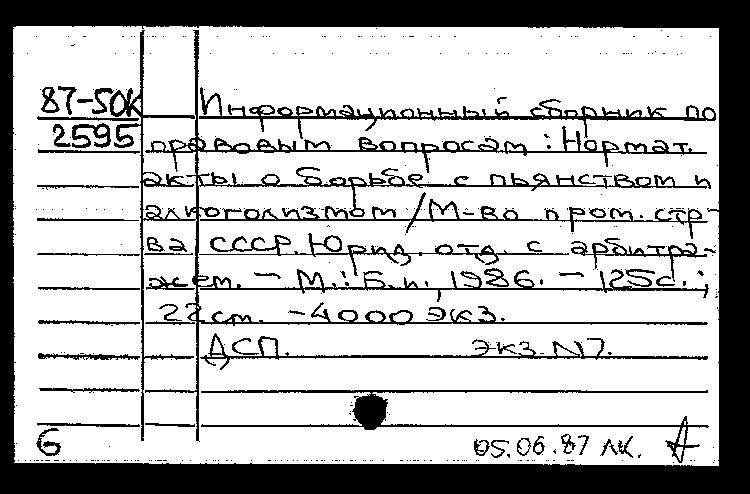 87-50К Информационный сборник по
2595 правовым вопросам : Нормат.
акты о борьбе с пьянством и
алкоголизмом / М-во пром. стр-
ва СССР. Юрид. отд. с арбитра-
жем. - М. : Б. и., 1986. - 125с. ;
22 см. - 4000 экз.
ДСП. экз. N7.
G 05.06.87 ЛК. А